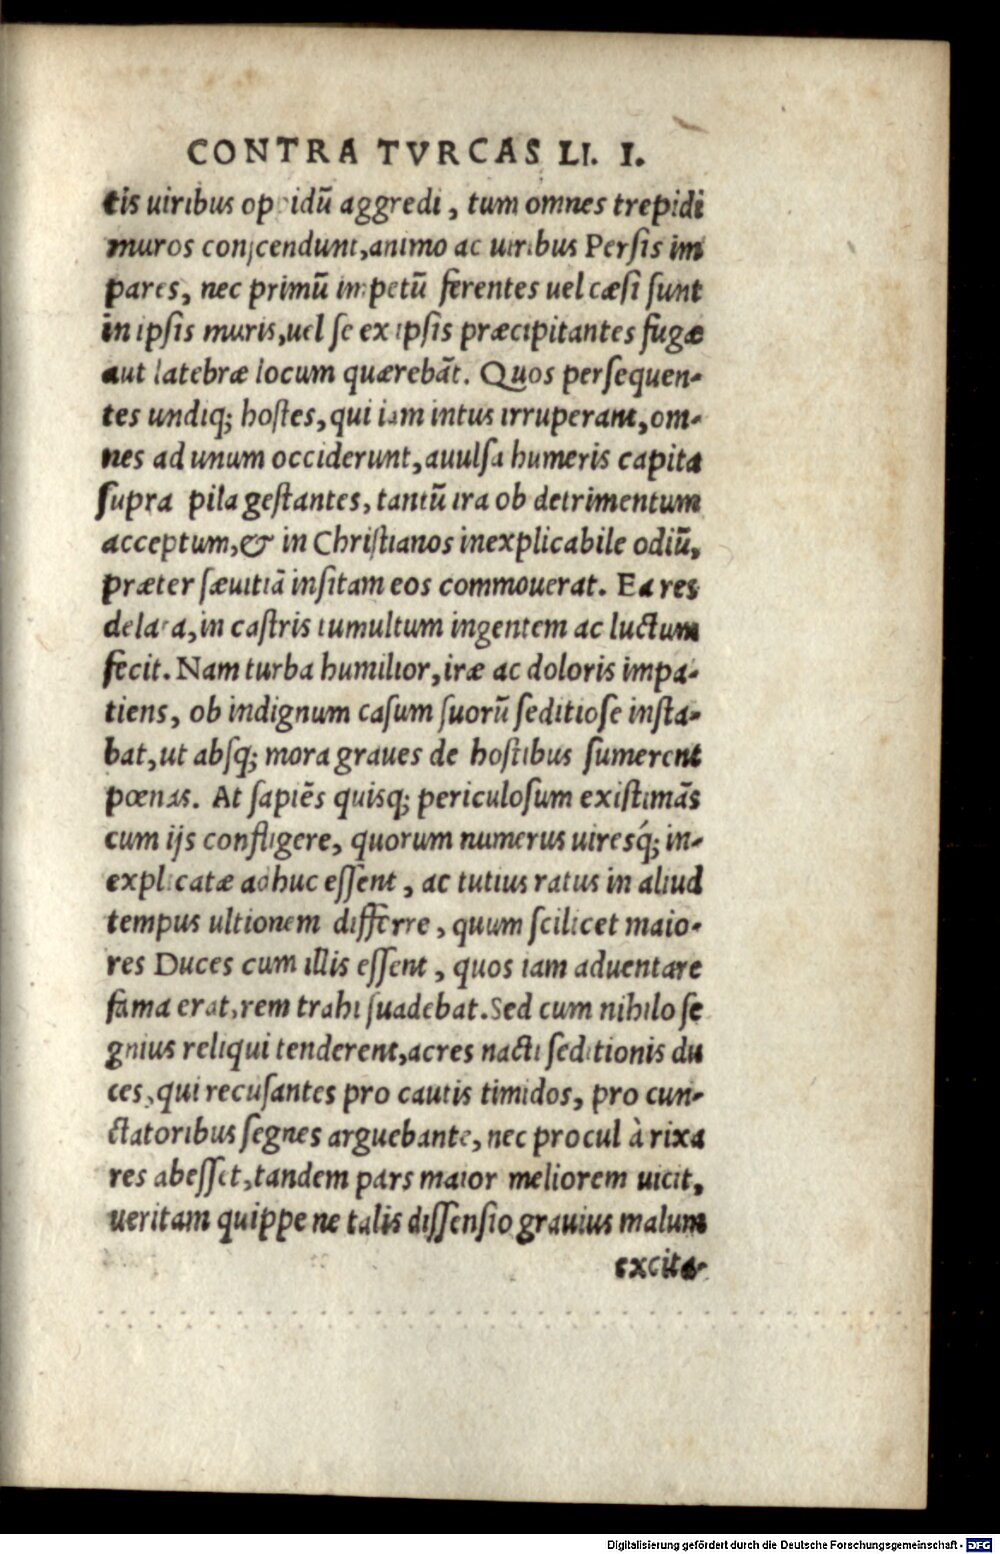 CONTRA TVRCAS LI. I.
tis uiribus oppidū aggredi, tum omnes trepidi
muros conscendunt, animo ac uiribus Persis im
pares, nec primū impetū ferentes uel cæsi sunt
in ipsis muris, uel se ex ipsis præcipitantes fugæ
aut latebræ locum quærebāt. Quos persequen-
tes undiq; hostes, qui iam intus irruperant, om-
nes ad unum occiderunt, auulsa humeris capita
supra pila gestantes, tantū ira ob detrimentum
acceptum, & in Christianos inexplicabile odiū,
præter sæuitiā insitam eos commouerat. Ea res
delata, in castris tumultum ingentem ac luctum
fecit. Nam turba humilior, iræ ac doloris impa-
tiens, ob indignum casum suorū seditiose insta-
bat, ut absq; mora graues de hostibus sumerent
pœnas. At sapiēs quisq; periculosum existimās
cum ijs confligere, quorum numerus uiresq́; in-
explicatæ adhuc essent, ac tutius ratus in aliud
tempus ultionem differre, quum scilicet maio-
res Duces cum illis essent, quos iam aduentare
fama erat, rem trahi suadebat. Sed cum nihilo se
gnius reliqui tenderent, acres nacti seditionis du
ces, qui recusantes pro cautis timidos, pro cun-
ctatoribus segnes arguebante, nec procul à rixa
res abesset, tandem pars maior meliorem uicit,
ueritam quippe ne talis dissensio grauius malum
excita-
Digitalisierung gefördert durch die Deutsche Forschungsgemeinschaft - DFG